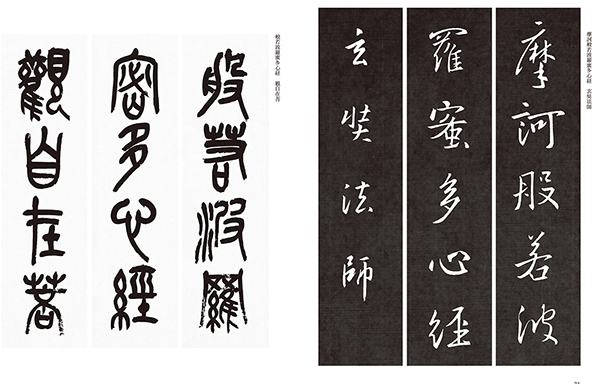 摩訶般若波羅蜜多心経　玄奘法師
摩訶般若波
羅蜜多心經
玄奘法師
般若波羅蜜多心経　観自在菩
般若波羅
密多心經
觀自在菩